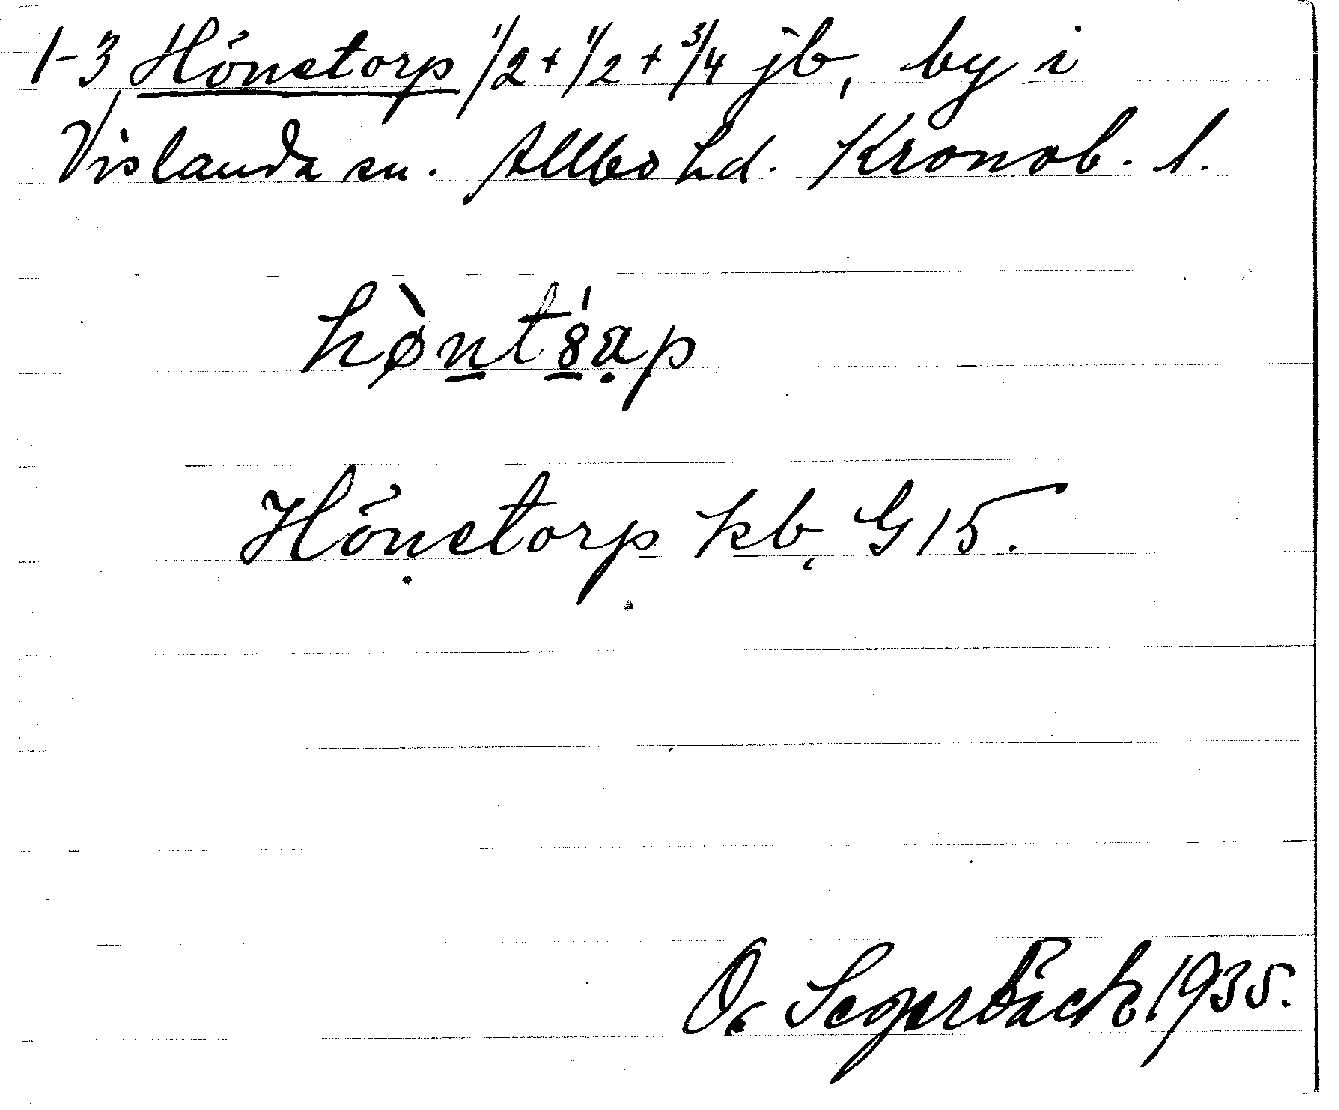 1-3 Hönetorp 1/2 + 1/2 + 3/4 jb, by i
Vislanda sn. Allbo hd. Kronob. l.
Hönetorp kb, G 15.
O. Segerbäck 1935.